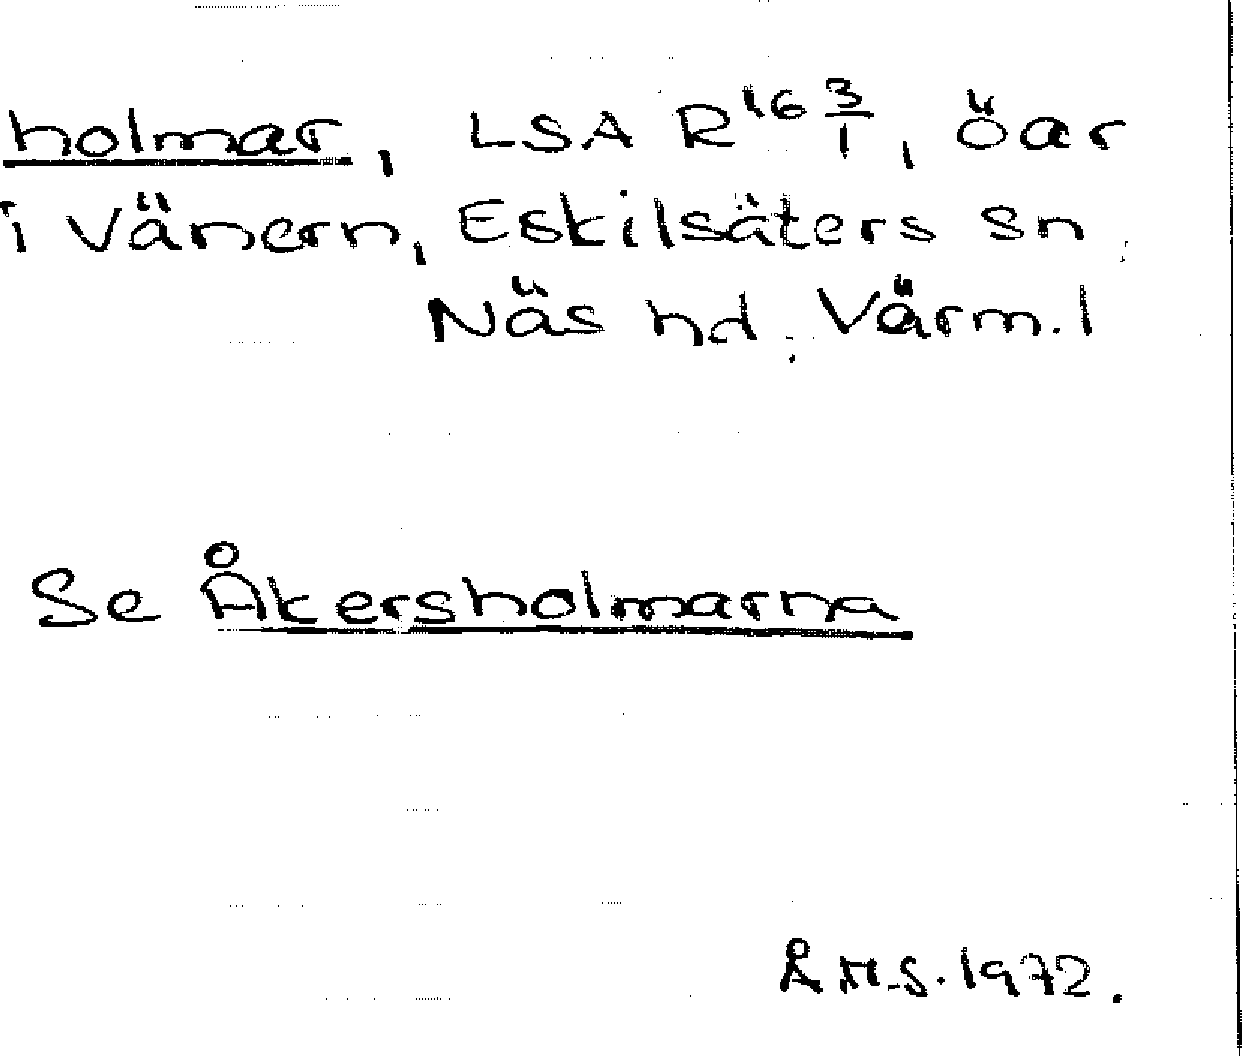 holmar, LSA R¹⁶ 3/1, öar
i Vänern, Eskilsäters sn
Näs hd. Värm. l
Se Åkersholmarna
Å M.S. 1972.